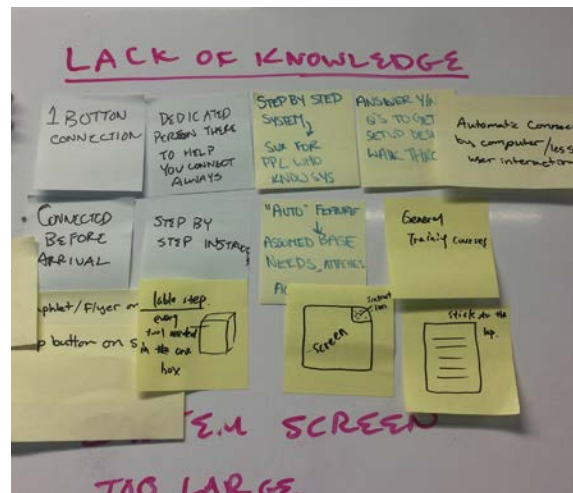 LACK OF KNOWLEDGE
1 BUTTON
CONNECTION
DEDICATED
PERSON THERE
TO HELP
YOU CONNECT
ALWAYS
STEP BY STEP
SYSTEM,
FOR
PPL WHO
KNOW SYS
ANSWER Y/N
Q'S TO GET
SETUP
WALK
Automatic
by computer/less
user interaction
CONNECTED
BEFORE
ARRIVAL
STEP BY
STEP
"AUTO" FEATURE
ASSUMED BASE
NEEDS
General
Training Courses
/Flyer on
button on
lable step.
every
tool needed
in the one
box
screen
stick to the
top.
SCREEN
TOO LARGE